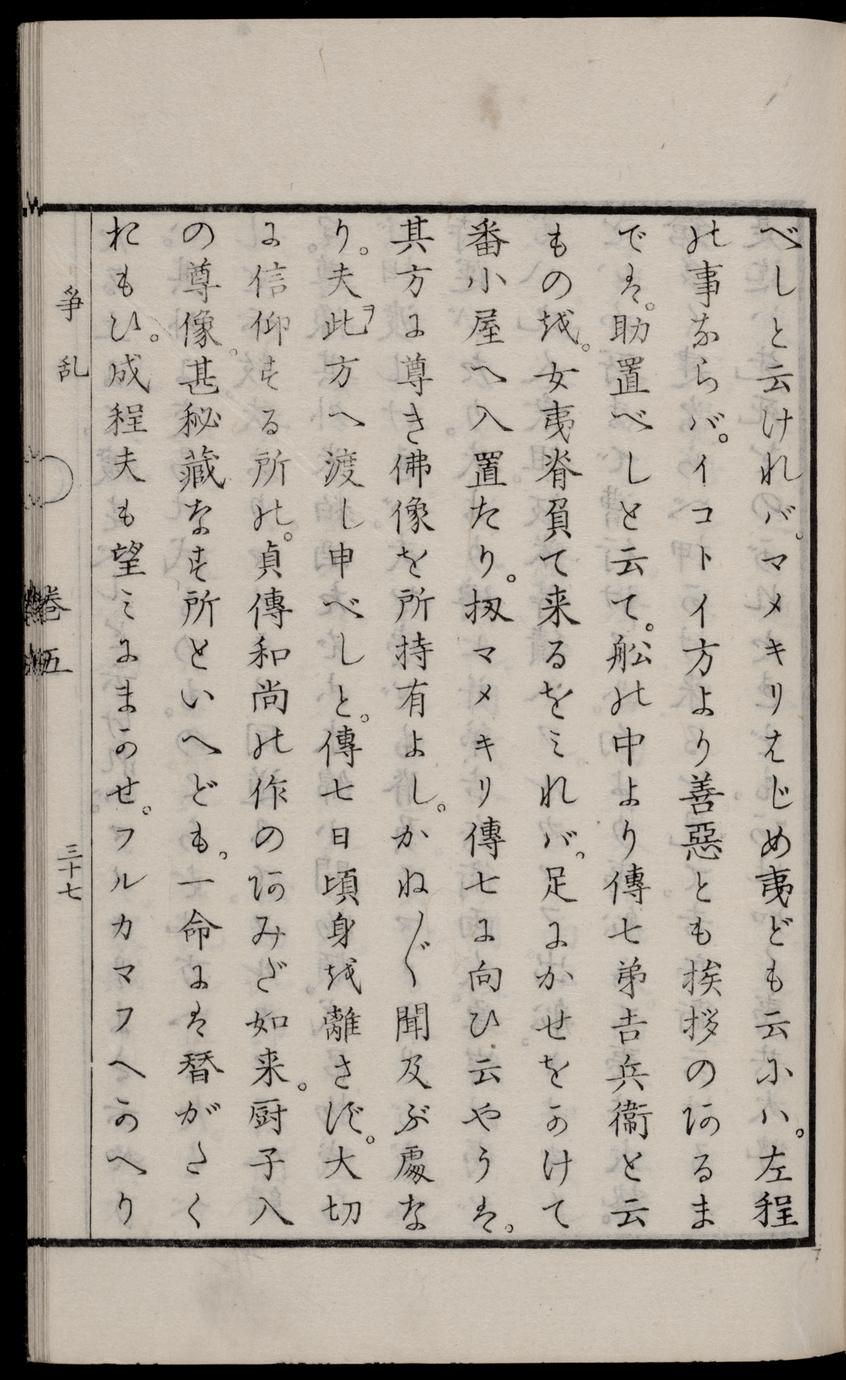 べしと云けれバ。マメキリはじめ夷ども云ふハ。左程
の事ならバ。イコトイ方より善惡とも挨拶のあるま
では。助置べしと云て。舩の中より傳七弟吉兵衞と云
もの越。女夷脊負て来るをミれバ。足にかせをかけて
番小屋へ入置たり。扨マメキリ傳七に向ひ云やうは。
其方に尊き佛像を所持有よし。かね〴〵聞及ぶ處な
り。夫ヲ此方へ渡し申べしと。傳七日頃身越離さず。大切
に信仰する所の。貞傳和尚の作のあみだ如来。厨子入
の尊像。甚秘藏なす所といへども。一命には替がたく
おもひ。成程夫も望ミにまかせ。フルカマフへかへり
争乱 卷五 三十七